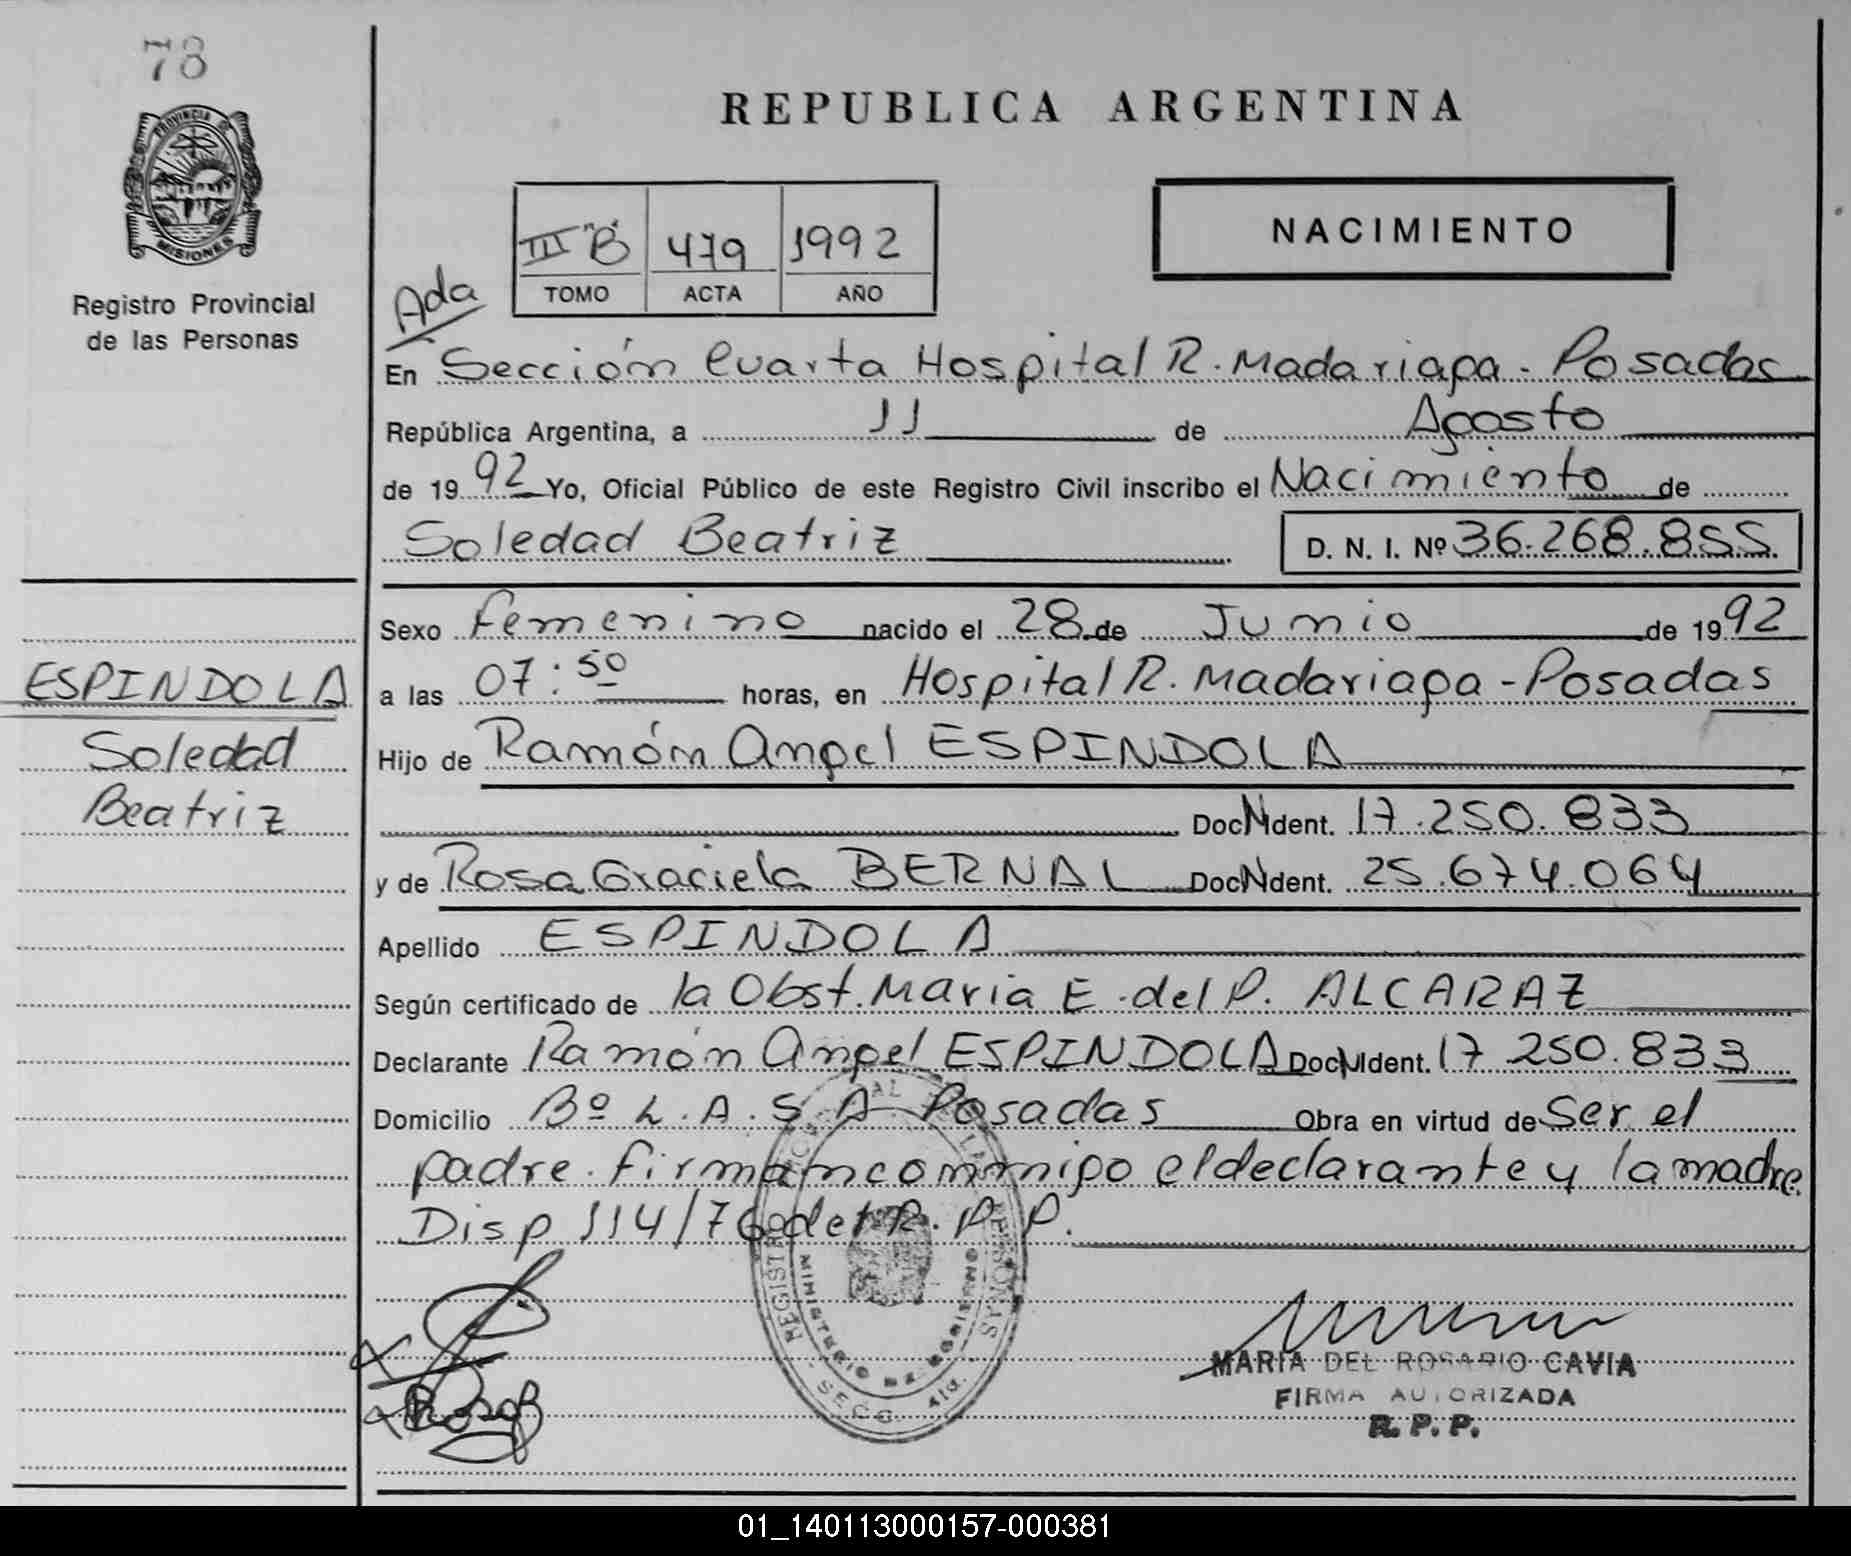 78
PROVINCIA DE
MISIONES
Registro Provincial
de las Personas
REPUBLICA ARGENTINA
NACIMIENTO
III "B" 479 1992
TOMO ACTA AÑO
Ada
En Sección Cuarta Hospital R. Madariaga - Posadas
República Argentina, a 11 de Agosto
de 1992 Yo, Oficial Público de este Registro Civil inscribo el Nacimiento de
Soledad Beatriz D. N. I. Nº 36.268.855
Sexo Femenino nacido el 28 de Junio de 1992
ESPINDOLA
Soledad
Beatriz
a las 07:50 horas, en Hospital R. Madariaga - Posadas
Hijo de Ramón Angel ESPINDOLA
Doc N Ident. 17.250.833
y de Rosa Graciela BERNAL Doc N Ident. 25.674.064
Apellido ESPINDOLA
Según certificado de la Obst. Maria E. del P. ALCARAZ
Declarante Ramón Angel ESPINDOLA Doc N Ident. 17 250.833
Domicilio Bº L.A.S.A Posadas Obra en virtud de Ser el
padre. firman conmigo el declarante y la madre.
Disp 114/76 del R. P. P.
REGISTRO PROVINCIAL DE LAS PERSONAS
MINISTERIO DE GOBIERNO
SECC. 4ta.
Rosa B
MARIA DEL ROSARIO CAVIA
FIRMA AUTORIZADA
R. P. P.
01_140113000157-000381